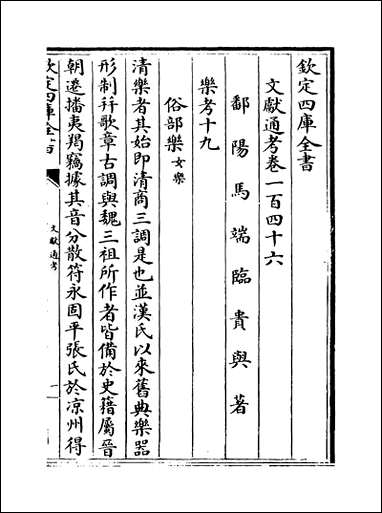 欽定四庫全書
文獻通考卷一百四十六
鄱陽馬端臨貴與著
樂考十九
俗部樂女樂
清樂者其始即清商三調是也並漢氏以來舊典樂器
形制并歌章古調與魏三祖所作者皆備於史籍屬晉
朝遷播夷羯竊據其音分散符永固平張氏於凉州得
欽定四庫全書
文獻通考
一